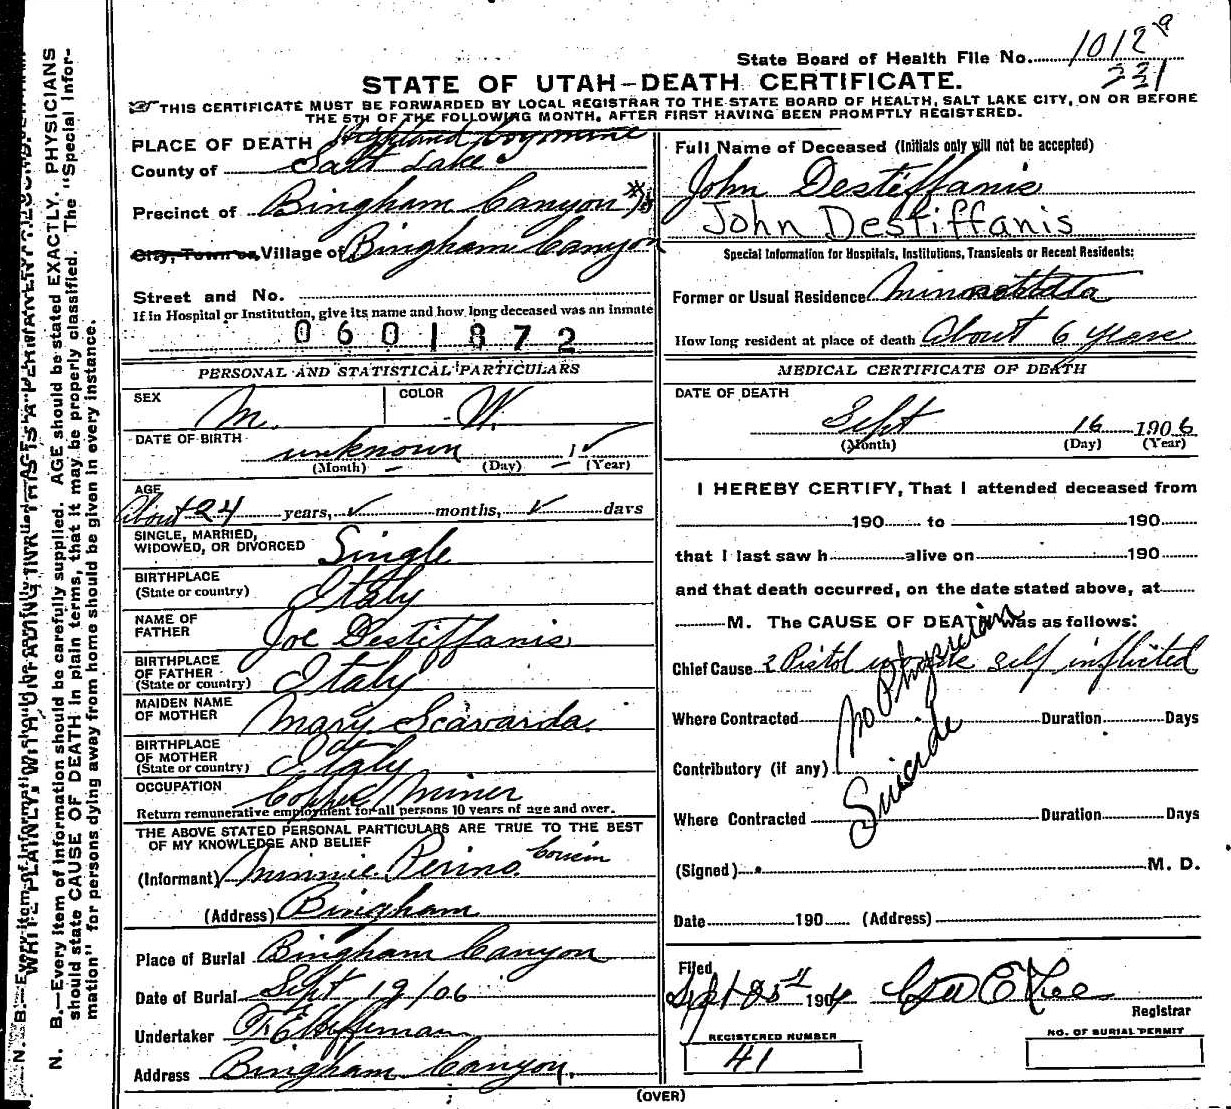 State Board of Health File No. 1012 a
331
STATE OF UTAH—DEATH CERTIFICATE.
THIS CERTIFICATE MUST BE FORWARDED BY LOCAL REGISTRAR TO THE STATE BOARD OF HEALTH, SALT LAKE CITY, ON OR BEFORE
THE 5TH OF THE FOLLOWING MONTH, AFTER FIRST HAVING BEEN PROMPTLY REGISTERED.
PLACE OF DEATH Highland Boy mine
County of Salt Lake
Precinct of Bingham Canyon
City, Town or Village of Bingham Canyon
Street and No.
If in Hospital or Institution, give its name and how long deceased was an inmate
0601872
PERSONAL AND STATISTICAL PARTICULARS
SEX M. COLOR W.
DATE OF BIRTH unknown 1
(Month) (Day) (Year)
AGE
About 24 years, months, days
SINGLE, MARRIED,
WIDOWED, OR DIVORCED Single
BIRTHPLACE
(State or country) Italy
NAME OF
FATHER Joe Destiffanis
BIRTHPLACE
OF FATHER
(State or country) Italy
MAIDEN NAME
OF MOTHER Mary Scavarda
BIRTHPLACE
OF MOTHER
(State or country) Italy
OCCUPATION Copper Miner
Return remunerative employment for all persons 10 years of age and over.
THE ABOVE STATED PERSONAL PARTICULARS ARE TRUE TO THE BEST
OF MY KNOWLEDGE AND BELIEF
(Informant) Minnie Perino Cousin
(Address) Bingham
Place of Burial Bingham Canyon
Date of Burial Sept 19/06
Undertaker
Address Bingham Canyon.
Full Name of Deceased (Initials only will not be accepted)
John Destiffanis
John Destiffanis
Special Information for Hospitals, Institutions, Transients or Recent Residents:
Former or Usual Residence
How long resident at place of death About 6 years
MEDICAL CERTIFICATE OF DEATH
DATE OF DEATH
Sept 16 1906
(Month) (Day) (Year)
I HEREBY CERTIFY, That I attended deceased from
190 to 190
that I last saw h alive on 190
and that death occurred, on the date stated above, at
M. The CAUSE OF DEATH was as follows:
Chief Cause 2 Pistol self inflicted
No Physician
Suicide
Where Contracted Duration Days
Contributory (if any)
Where Contracted Duration Days
(Signed) M. D.
Date 190 (Address)
Filed
Sept 25th 190 Geo E Lee
Registrar
REGISTERED NUMBER
41
NO. OF BURIAL PERMIT
(OVER)
N. B.—Every item of information should be carefully supplied. AGE should be stated EXACTLY. PHYSICIANS
should state CAUSE OF DEATH in plain terms, that it may be properly classified. The "Special Infor-
mation" for persons dying away from home should be given in every instance.
WRITE PLAINLY, WITH UNFADING INK—THIS IS A PERMANENT RECORD.